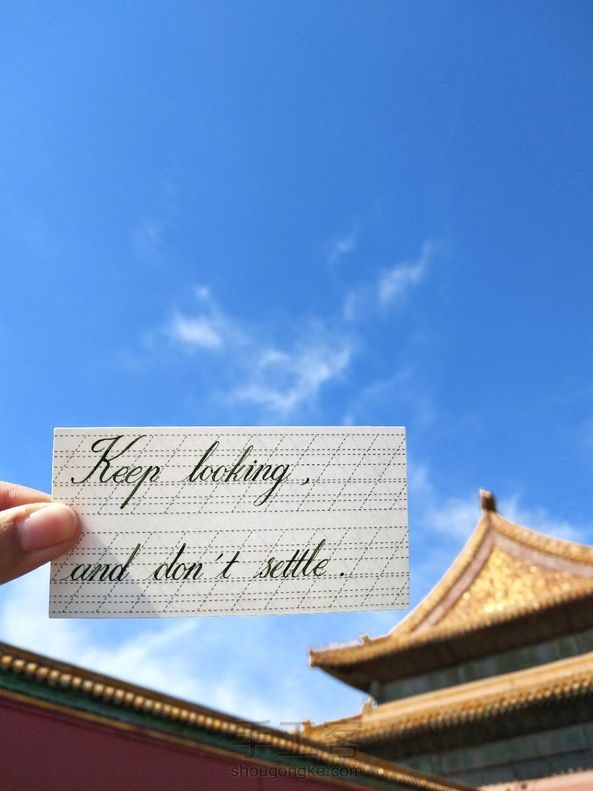 Keep looking,
and don't settle.
手工客
shougongke.com